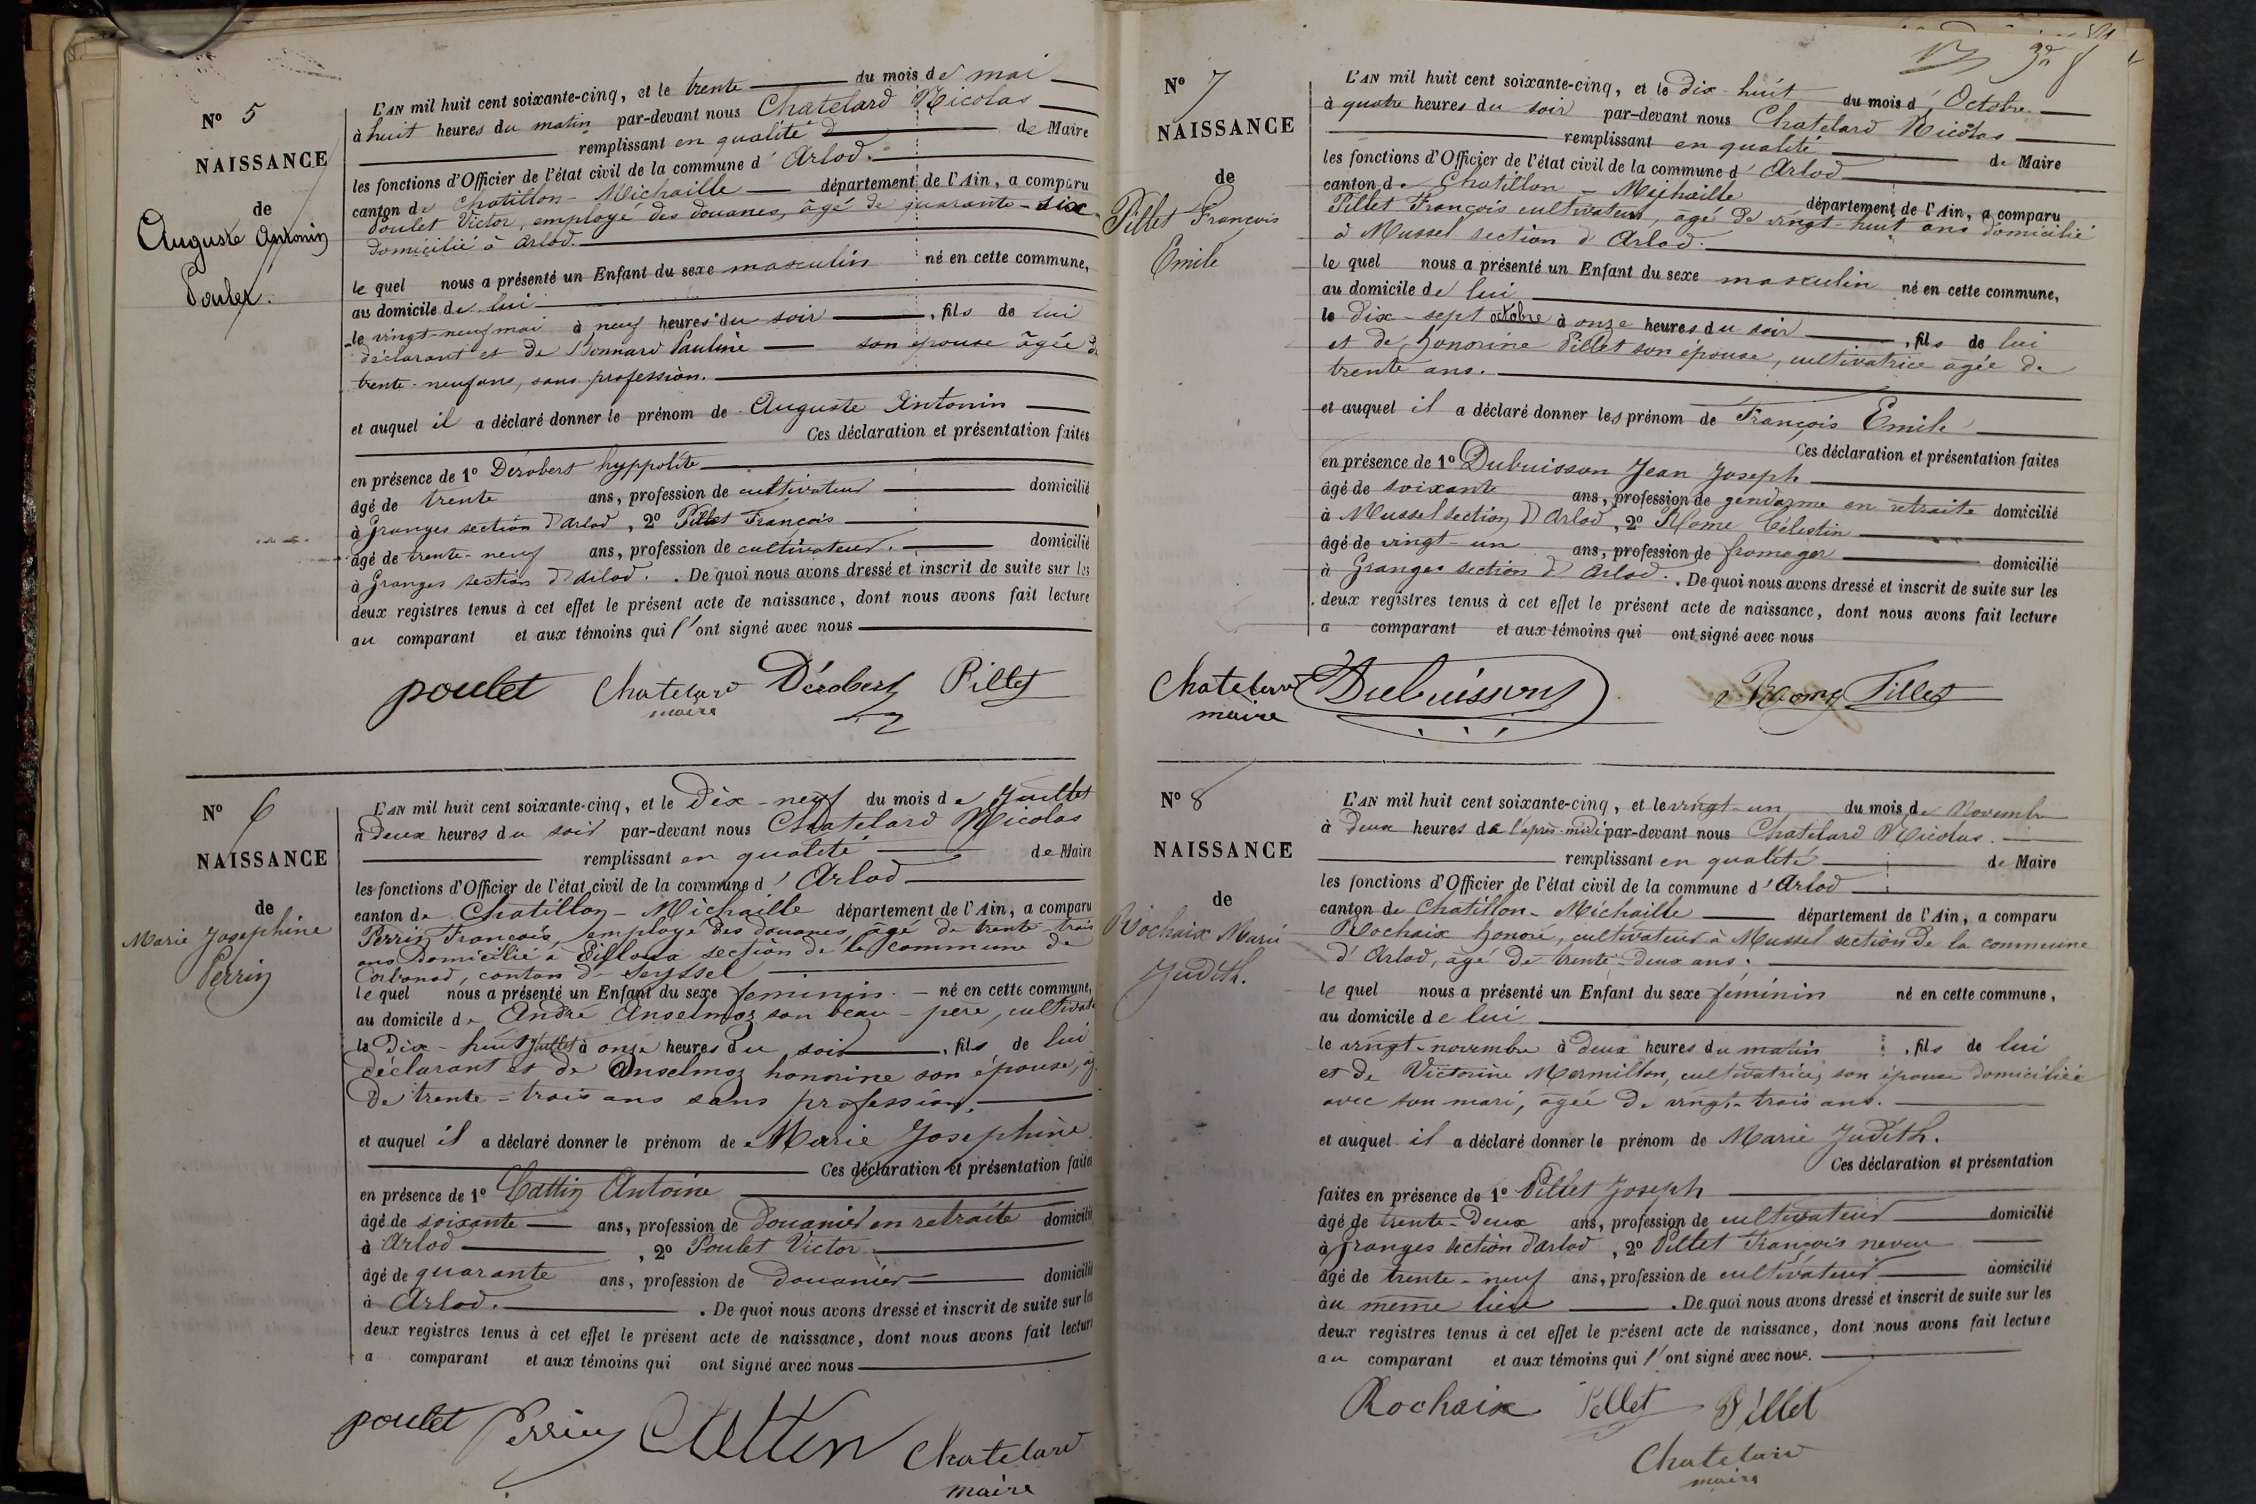 N° 5
NAISSANCE
de
Auguste Antonin
Poulet.
L'AN mil huit cent soixante-cinq, et le trente du mois de mai
à huit heures du matin par-devant nous Chatelard Nicolas
remplissant en qualité d de Maire
les fonctions d'Officier de l'état civil de la commune d'Arlod.
canton de Chatillon-Michaille département de l'Ain, a comparu
Poulet Victor, employé des douanes, âgé de quarante-six
domicilié à Arlod.
le quel nous a présenté un Enfant du sexe masculin né en cette commune,
au domicile de lui
le vingt-neuf mai à neuf heures du soir, fils de lui
déclarant et de Bonnard Pauline son épouse âgée de
trente-neuf ans, sans profession.
et auquel il a déclaré donner le prénom de Auguste Antonin
Ces déclaration et présentation faites
en présence de 1° Dérobert hyppolite
âgé de trente ans, profession de cultivateur domicilié
à Granges section d'Arlod, 2° Pillet François
âgé de trente-neuf ans, profession de cultivateur. domicilié
à Granges section d'Arlod. . De quoi nous avons dressé et inscrit de suite sur les
deux registres tenus à cet effet le présent acte de naissance, dont nous avons fait lecture
au comparant et aux témoins qui l'ont signé avec nous
poulet Chatelard Dérobert Pillet
maire
N° 6
NAISSANCE
de
Marie Josephine
Perrin
L'AN mil huit cent soixante-cinq, et le Dix-neuf du mois de Juillet
à deux heures du soir par-devant nous Chatelard Nicolas
remplissant en qualité de Maire
les fonctions d'Officier de l'état civil de la commune d'Arlod
canton de Chatillon-Michaille département de l'Ain, a comparu
Perrin François, employé des douanes, âgé de trente-trois
ans domicilié à section de la commune de
Corbonod, canton de Seyssel
le quel nous a présenté un Enfant du sexe feminin. né en cette commune,
au domicile de André Anselmoz son beau-père, cultivat
le Dix-huit Juillet à onze heures du soir, fils de lui
déclarant et de Anselmoz honorine son épouse, ag
De trente-trois ans sans profession.
et auquel il a déclaré donner le prénom de Marie Josephine
Ces déclaration et présentation faites
en présence de 1° Cattin Antoine
âgé de soixante ans, profession de Douanier en retraite domicilié
à Arlod, 2° Poulet Victor
âgé de quarante ans, profession de douanier domicilié
à Arlod. . De quoi nous avons dressé et inscrit de suite sur les
deux registres tenus à cet effet le présent acte de naissance, dont nous avons fait lecture
a comparant et aux témoins qui ont signé avec nous
poulet Perrin Cattin Chatelard
maire
N° 7
NAISSANCE
de
Pillet François
Emile
L'AN mil huit cent soixante-cinq, et le dix-huit du mois d'Octobre
à quatre heures du soir par-devant nous Chatelard Nicolas
remplissant en qualité de Maire
les fonctions d'Officier de l'état civil de la commune d'Arlod
canton de Chatillon-Michaille département de l'Ain, a comparu
Pillet François cultivateur, âgé de vingt-huit ans domicilié
à Mussel section d'Arlod.
le quel nous a présenté un Enfant du sexe masculin né en cette commune,
au domicile de lui
le dix-sept octobre à onze heures du soir, fils de lui
et de honorine Pillet son épouse, cultivatrice agée de
trente ans.
et auquel il a déclaré donner les prénom de François Emile
Ces déclaration et présentation faites
en présence de 1° Dubuisson Jean Joseph
âgé de soixante ans, profession de gendarme en retraite domicilié
à Mussel section d'Arlod, 2° Célestin
âgé de vingt-un ans, profession de fromager domicilié
à Granges section d'Arlod. . De quoi nous avons dressé et inscrit de suite sur les
deux registres tenus à cet effet le présent acte de naissance, dont nous avons fait lecture
a comparant et aux témoins qui ont signé avec nous
Chatelard Dubuisson Pillet
maire
N° 8
NAISSANCE
de
Rochaix Marie
Judith.
L'AN mil huit cent soixante-cinq, et le vingt-un du mois de Novembre
à deux heures de l'après-midi par-devant nous Chatelard Nicolas.
remplissant en qualité de Maire
les fonctions d'Officier de l'état civil de la commune d'Arlod
canton de Chatillon-Michaille département de l'Ain, a comparu
Rochaix honoré, cultivateur à Mussel section de la commune
d'Arlod, âgé de trente-deux ans.
le quel nous a présenté un Enfant du sexe féminin né en cette commune,
au domicile de lui
le vingt-novembre à deux heures du matin, fils de lui
et de Victorine Mermillon, cultivatrice, son épouse domiciliée
avec son mari, agée de vingt-trois ans.
et auquel il a déclaré donner le prénom de Marie Judith.
Ces déclaration et présentation
faites en présence de 1° Pillet Joseph
âgé de trente-deux ans, profession de cultivateur domicilié
à Granges section d'Arlod, 2° Pillet François neveu
âgé de trente-neuf ans, profession de cultivateur domicilié
au même lieu . De quoi nous avons dressé et inscrit de suite sur les
deux registres tenus à cet effet le présent acte de naissance, dont nous avons fait lecture
au comparant et aux témoins qui l'ont signé avec nous.
Rochaix Pillet Pillet
Chatelard
maire